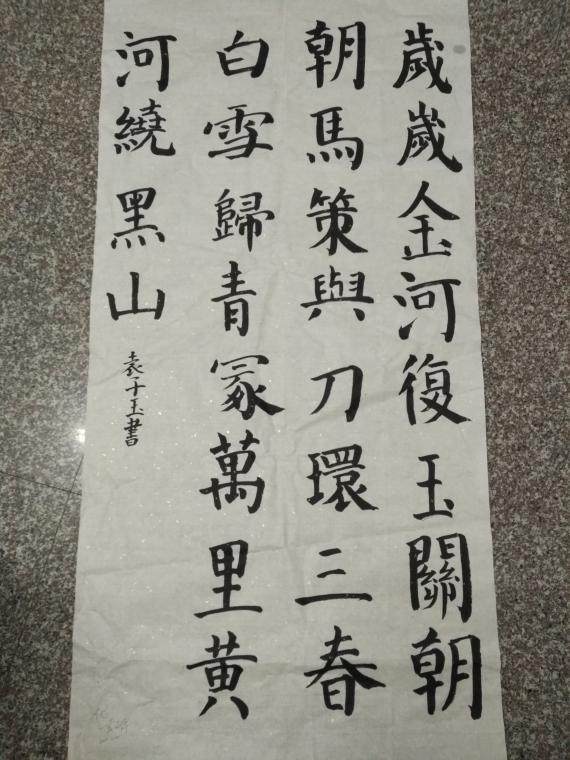 歲歲金河復玉關朝
朝馬策與刀環三春
白雪歸青冢萬里黃
河繞黑山
袁子玉書